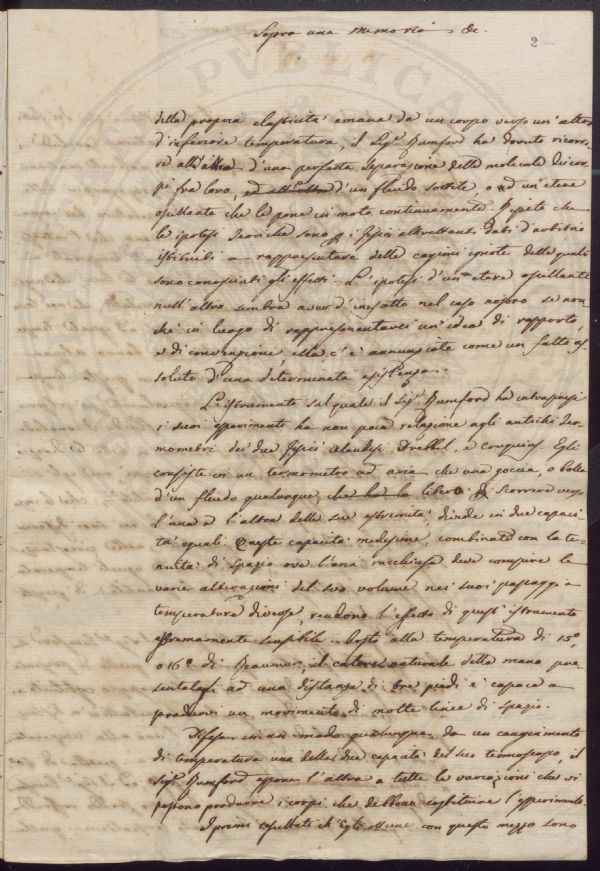 Sopra una memoria &c.
2
della propria elasticità emana da un corpo verso un'altro
d'inferiore temperatura, il Sigr. Rumford ha dovuto ricorre-
re all'idea d'una perfetta separazione delle molecole dei cor-
pi fra loro, d'un fluido sottile, o ad un'etere
oscillante che le pone in moto continuamente. Ripeto che
le ipotesi teoriche sono pr. i fisici altrettanti dati d'arbitrio
istituiti a rappresentare delle cagioni ignote delle quali
sono conosciuti gli effetti. L'ipotesi d'un etere oscillante
null'altro sembra aver d'inesatto nel caso nostro se non
chè in luogo di rappresentarci un'idea di rapporto,
e di convenzione, ella c'è annunziata come un fatto as-
soluto d'una determinata esistenza.
L'istrumento sul quale il Sigr. Rumford ha intrapresi
i suoi esperimenti ha non poca relazione agli antichi ter-
mometri dei due fisici olandesi Drebbel, e Cruquius. Egli
consiste in un termometro ad aria che una goccia, o bolla
d'un fluido qualunque, che ha la libertà di scorrere verso
l'una e l'altra delle sue estremità divide in due capaci-
tà eguali. Queste capacità medesime, combinate con la te-
nuità di spazio ove l'aria racchiusa deve compire le
varie alterazioni del suo volume nei suoi passaggi a
temperature diverse, rendono l'effetto di questi istrumento
estremamente sensibile. Posto alla temperatura di 15°,
o 16° di Reaumur, il calore naturale della mano pre-
sentatagli ad una distanza di tre piedi è capace a
produrvi un movimento di molte linee di spazio.
Difesa in un modo qualunque da un cangiamento
di temperatura una delle due capacità del suo termoscopio, il
Sigr. Rumford espone l'altra a tutte le variazioni che vi
possono produrre i corpi che debbono costituire l'esperimento.
I primi resultati ch'Egli ottiene con questo mezzo sono